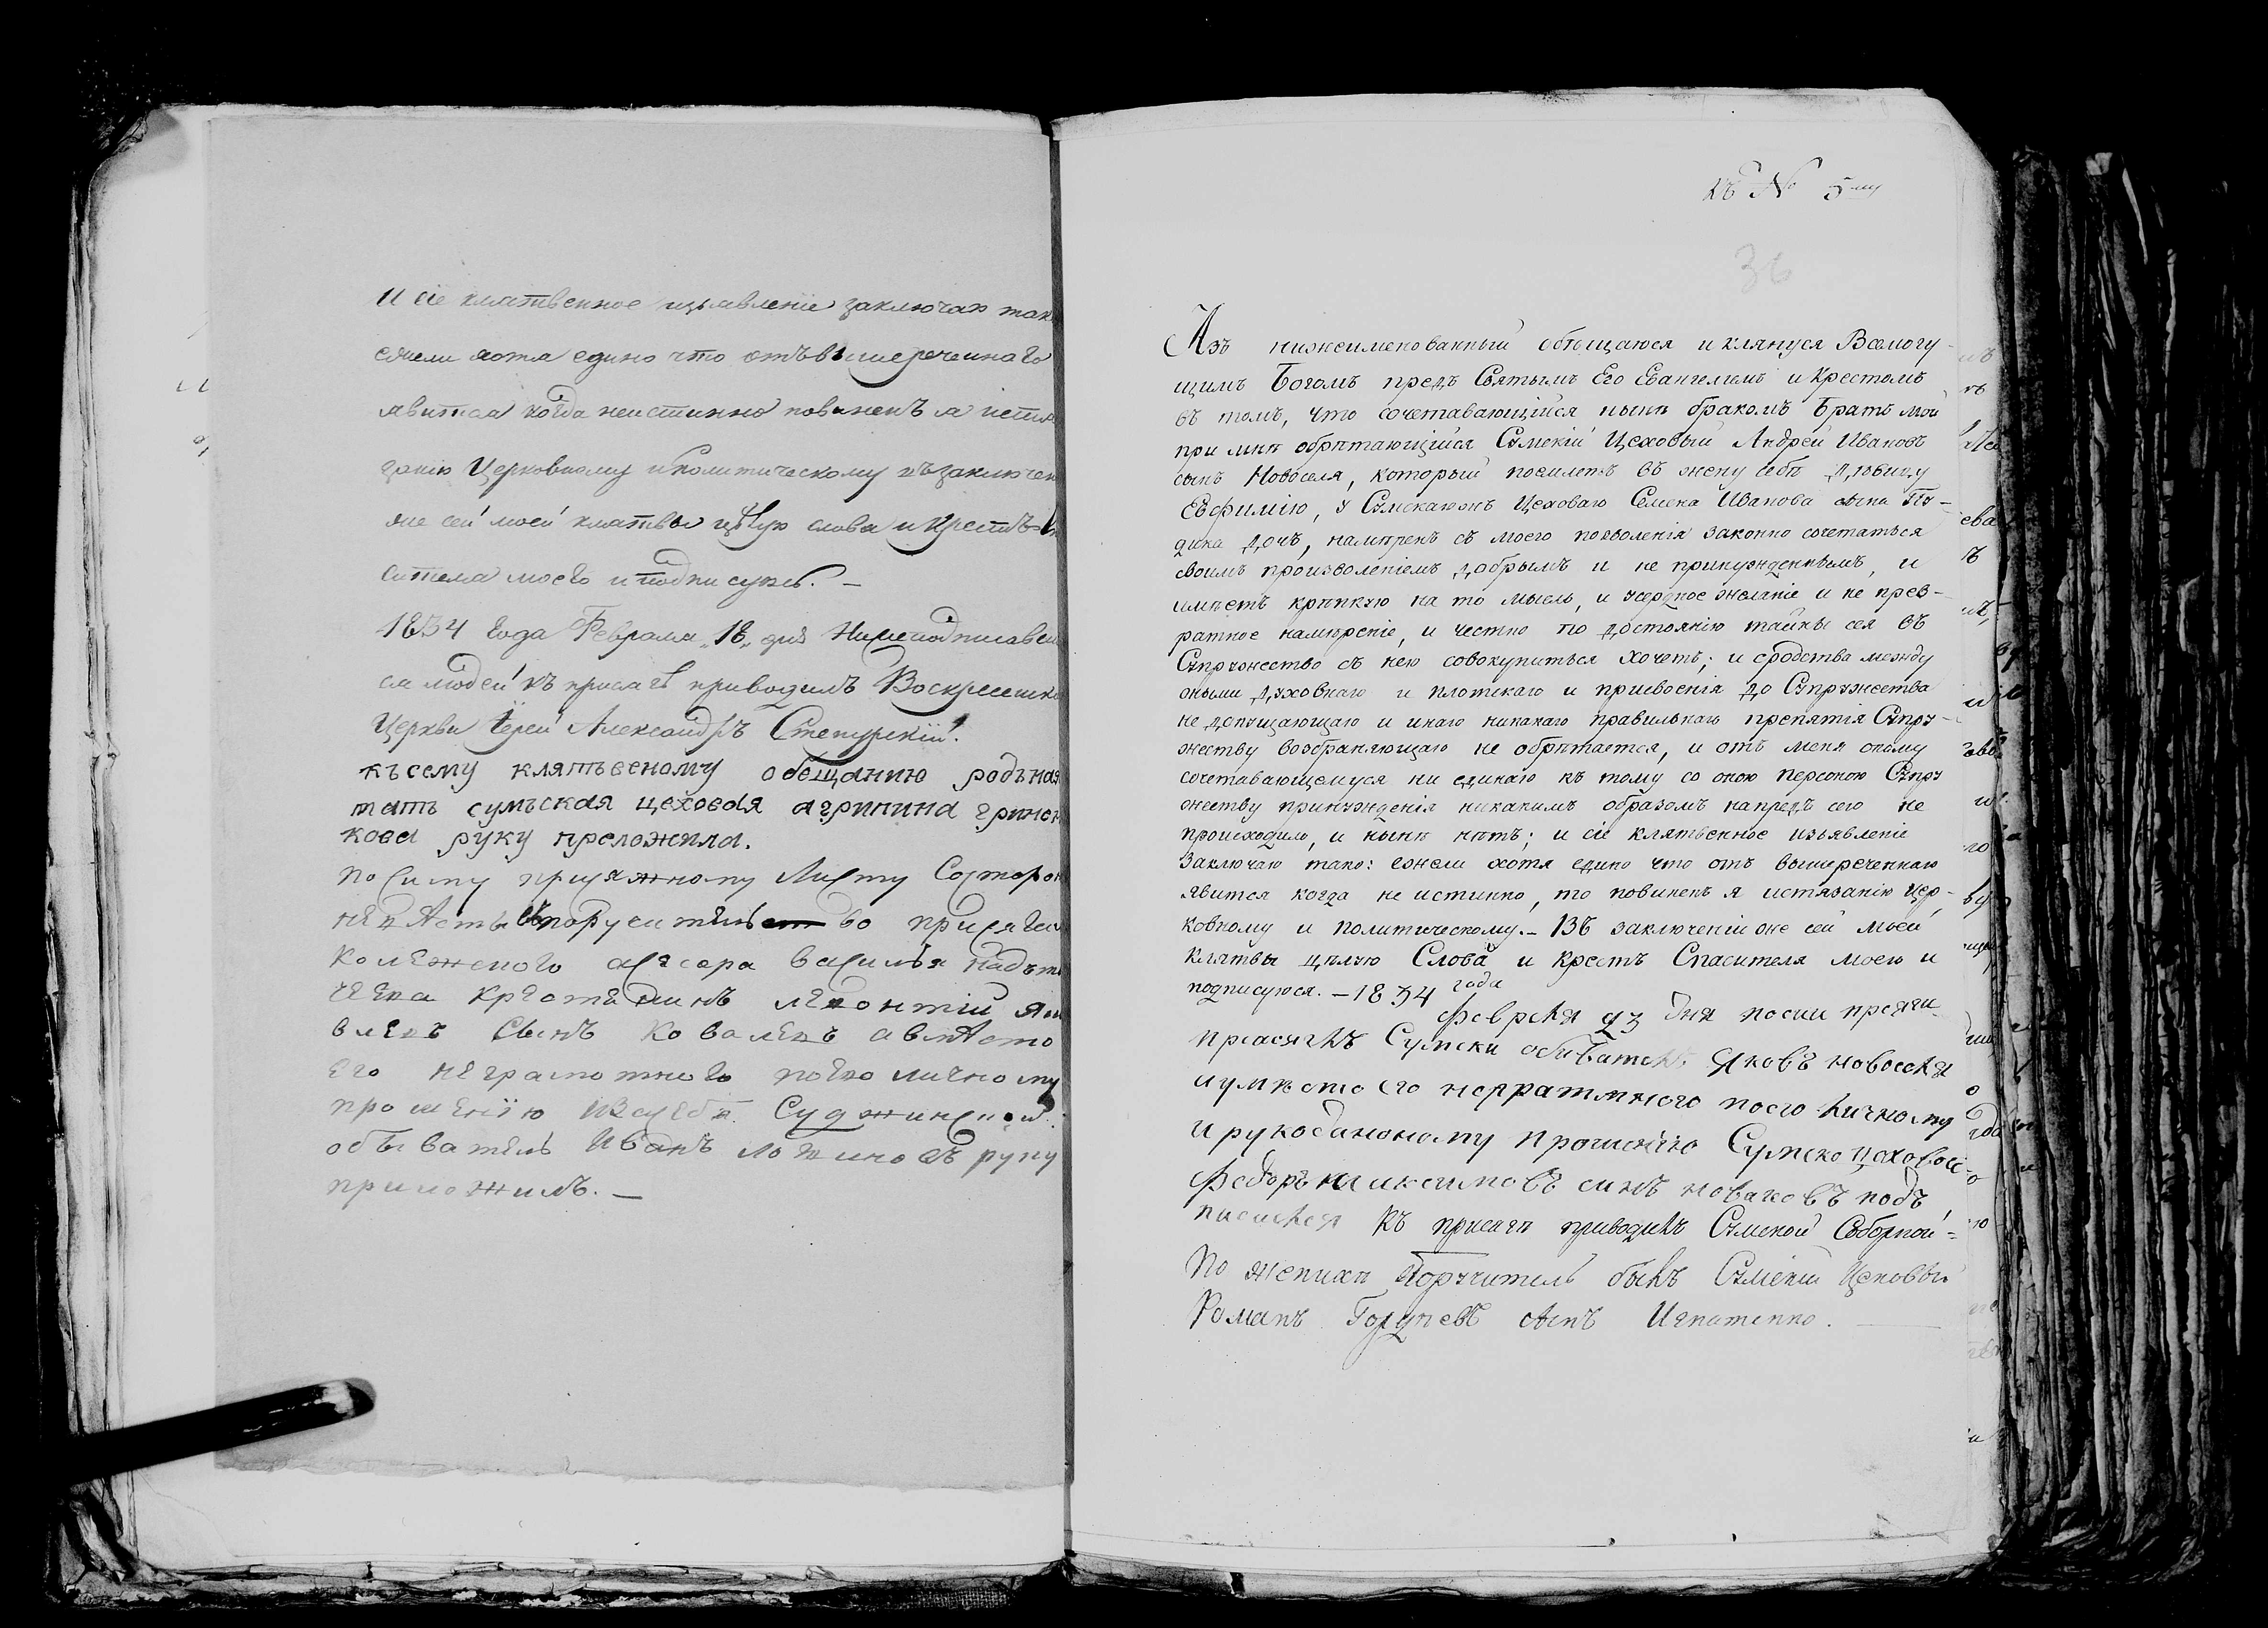 И сіе клятвенное изъявленіе заключаю так
ежели хотя едино что отъ вышереченнаго
явится когда неистинно повиненъ я истя
занію Церковному и политическому въ заключен
же сей моей клятвы цѣлую слова и Крестъ
сителя моего и подписуюсь. –
1834 года Февраля „18„ дня Нижеподписавши
ся людей къ присягѣ приводилъ Воскресенск
Церкви Іерей Александръ Степурскій.
къ сему клятьвеному обещанию родьная
мать сумьская цеховая агрипина гринен
кова руку преложила.
по сему присяжному Листу Состорон
невѣсты Споруситель во присяги
колежского асесора василья надъто
чеева крестянинъ левонтій Яко
влевъ Сынъ Ковалевъ авмѣсто
его неграмотного поево личному
прошенїю Изсуебъ. Суджинской
обыватель Иванъ логиновъ руку
приложилъ. –
Къ № 5му
36
Азъ нижеименованный обѣщаюся и клянуся Всемогу-
щимъ Богомъ предъ Святымъ Его Евангелiемъ и Крестомъ
въ томъ, что сочетавающійся нынѣ бракомъ Братъ мой
при мнѣ обрѣтающійся Сумскій Цеховый Андрей Ивановъ
сынъ Новоселя, который поемлетъ въ жену себѣ дѣвицу
Евфимію, у Сумскагожъ Цеховаго Семена Иванова сына
дика дочь, намѣренъ съ моего позволенія законно сочетаться
своимъ произволеніемъ добрымъ и не принужденнымъ, и
имѣетъ крѣпкую на то мысль, и усердное желаніе и не прев-
ратное намѣреніе, и честно по достоянію тайны сея въ
Супружество съ нею совокупиться хочетъ; и сродства между
оными духовнаго и плотскаго и присвоенія до Супружества
не допущающаго и инаго никакаго правильнаго препятія Супру-
жеству возбраняющаго не обрѣтается, и отъ меня оному
сочетавающемуся ни единаго къ тому со оною персоною Супру
жеству принужденія никакимъ образомъ напредъ сего не
происходило, и нынѣ нѣтъ; и сіе клятвенное изъявленіе
Заключаю тако: ежели хотя едино что отъ вышереченнаго
явится когда не истинно, то повиненъ я истязанію Цер-
ковному и политическому. – Въ заключеніи же сей моей
Клятвы цѣлую Слова и Крестъ Спасителя моего и
подписуюся. – 1834 года
Февраля дня посии присяги
присягалъ Сумски обиватель Яковъ новоселя
аумѣсто его неграмтного поего личному
и рукоданоному прошенїю Сумско цеховой
Федоръ максимовъ синъ новаковъ подъ
писался Къ присягѣ приводилъ Сумской Соборной =
По женихѣ Поручитель былъ Сумскій Цеховый
Романъ сынъ Игнатенко.